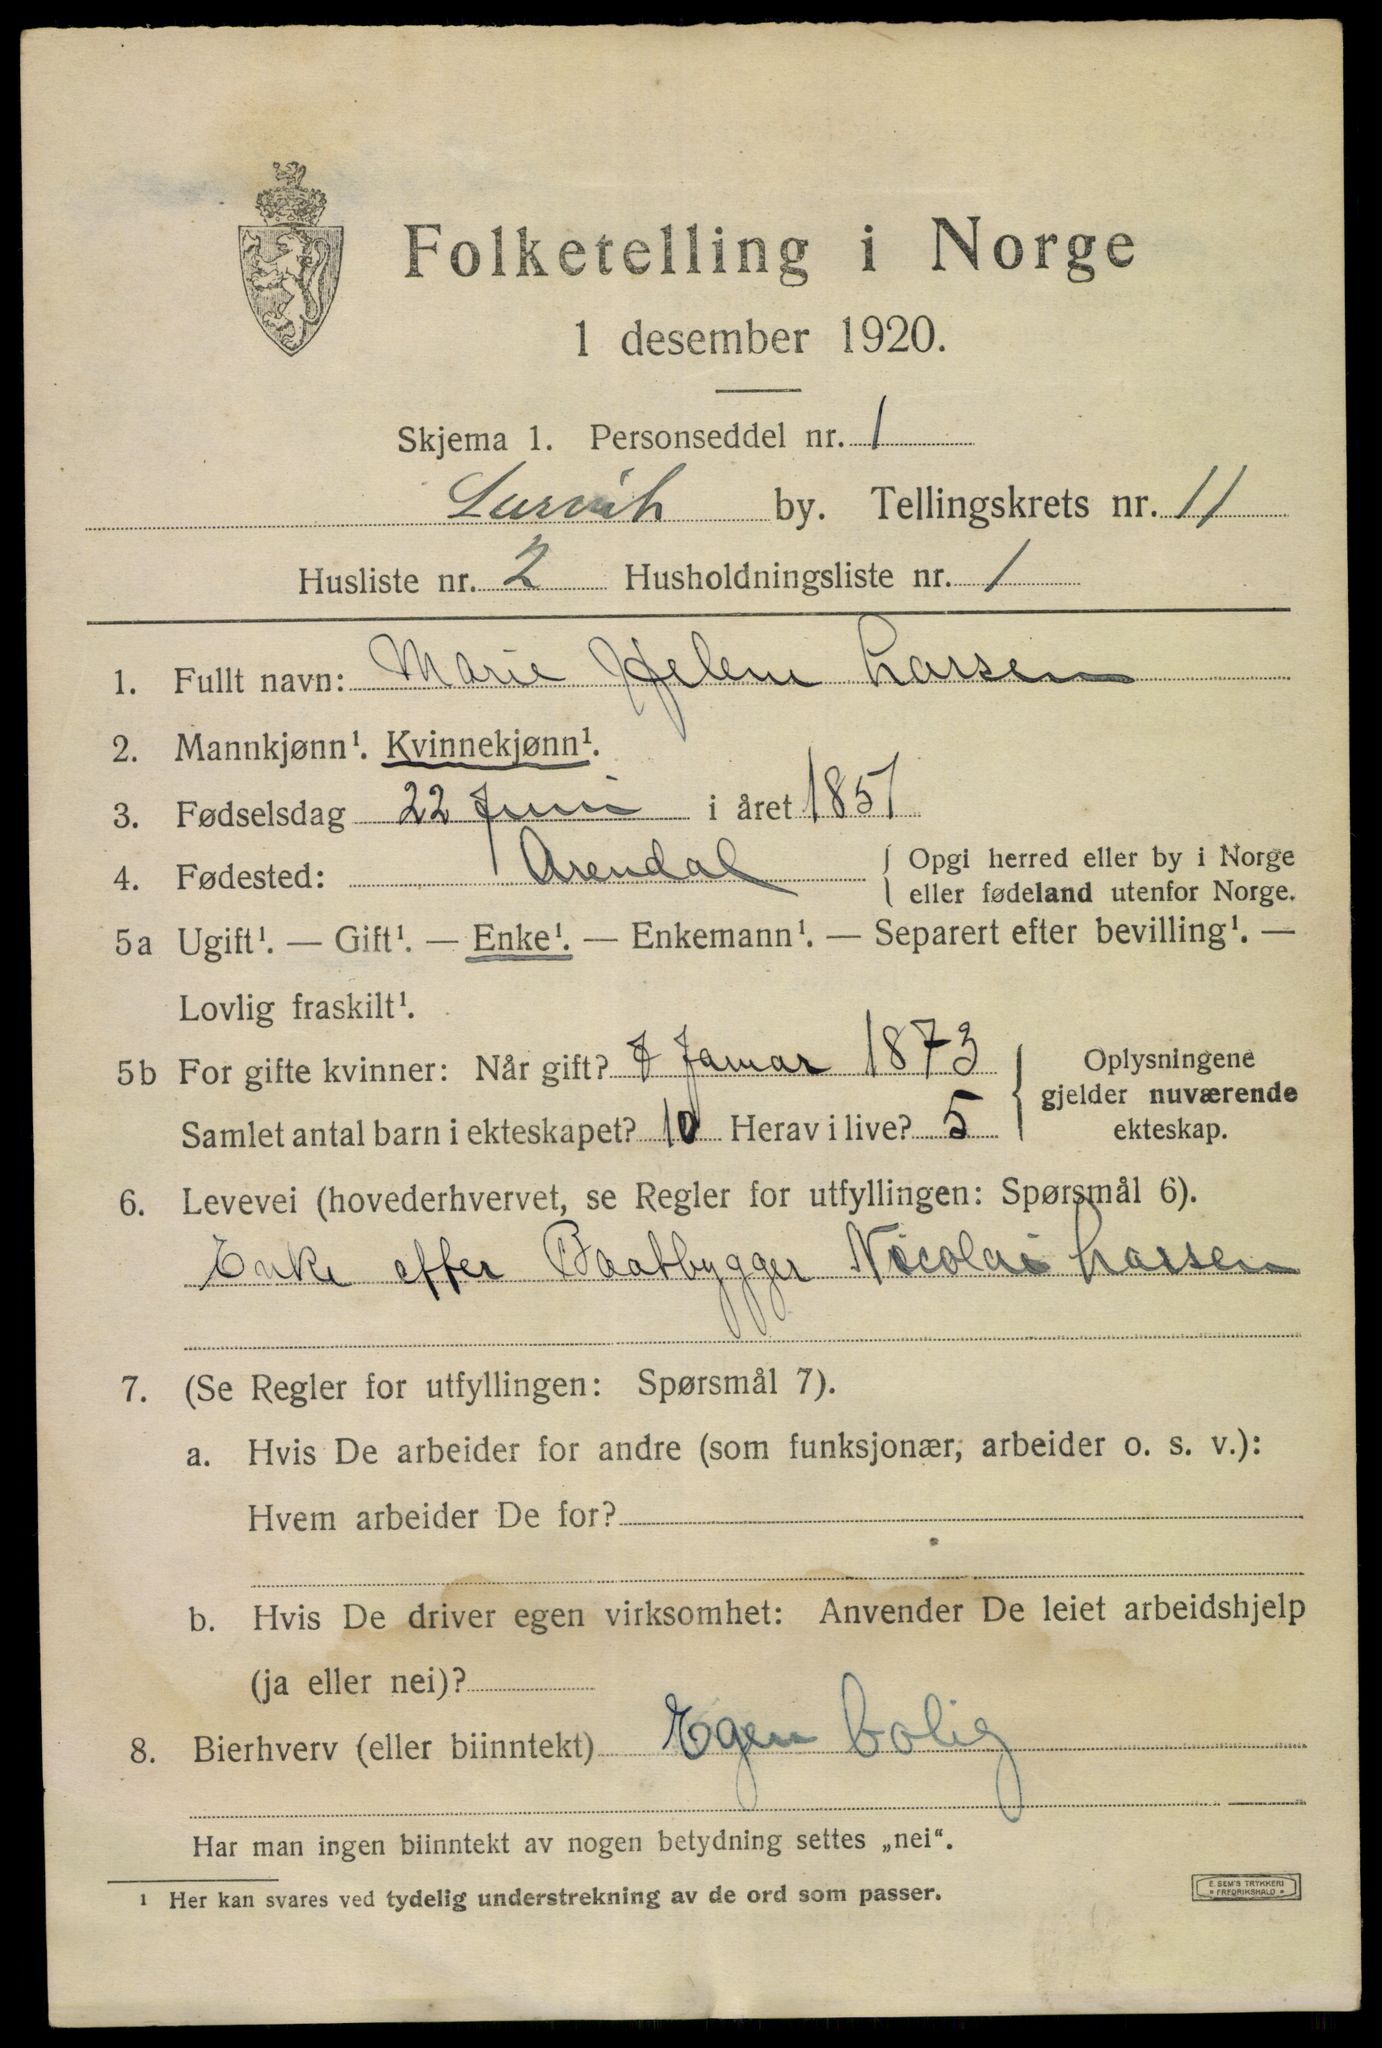 Folketelling i Norge
1 desember 1920.
Skjema 1. Personseddel nr. 1
Larvik by. Tellingskrets nr. 11
Husliste nr. 2 Husholdningsliste nr. 1
1. Fullt navn: Marie Helene Larsen
2. Mannkjønn¹. Kvinnekjønn¹.
3. Fødselsdag 22 Juni i året 1851
4. Fødested: Arendal { Opgi herred eller by i Norge
eller fødeland utenfor Norge.
5a Ugift¹. — Gift¹. — Enke¹. — Enkemann¹. — Separert efter bevilling¹. —
Lovlig fraskilt¹.
5b For gifte kvinner: Når gift? 7 Januar 1873
Samlet antal barn i ekteskapet? 10 Herav i live? 5
} Oplysningene
gjelder nuværende
ekteskap.
6. Levevei (hovederhvervet, se Regler for utfyllingen: Spørsmål 6).
Enke efter Baatbygger Nicolai Larsen
7. (Se Regler for utfyllingen: Spørsmål 7).
a. Hvis De arbeider for andre (som funksjonær, arbeider o. s. v.):
Hvem arbeider De for?
b. Hvis De driver egen virksomhet: Anvender De leiet arbeidshjelp
(ja eller nei)?
8. Bierhverv (eller biinntekt) Egen bolig
Har man ingen biinntekt av nogen betydning settes „nei“.
¹ Her kan svares ved tydelig understrekning av de ord som passer.
E. SEM'S TRYKKERI
• FREDRIKSHALD •